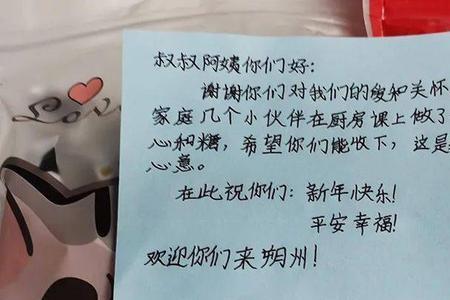 Love
叔叔阿姨你们好：
谢谢你们对我们的爱和关怀
家庭几个小伙伴在厨房课上做了
心和糖，希望你们能收下，这是
心意。
在此祝你们：新年快乐！
平安幸福！
欢迎你们来朔州！